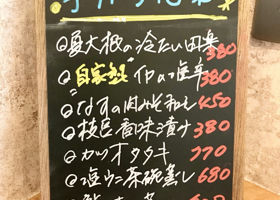 ◎夏大根の冷たい田楽 380
◎自家製 イカの塩辛 380
◎なすの肉みそ和え 450
◎枝豆香味漬け 380
◎カツオタタキ 770
◎塩ウニ茶碗蒸し 680